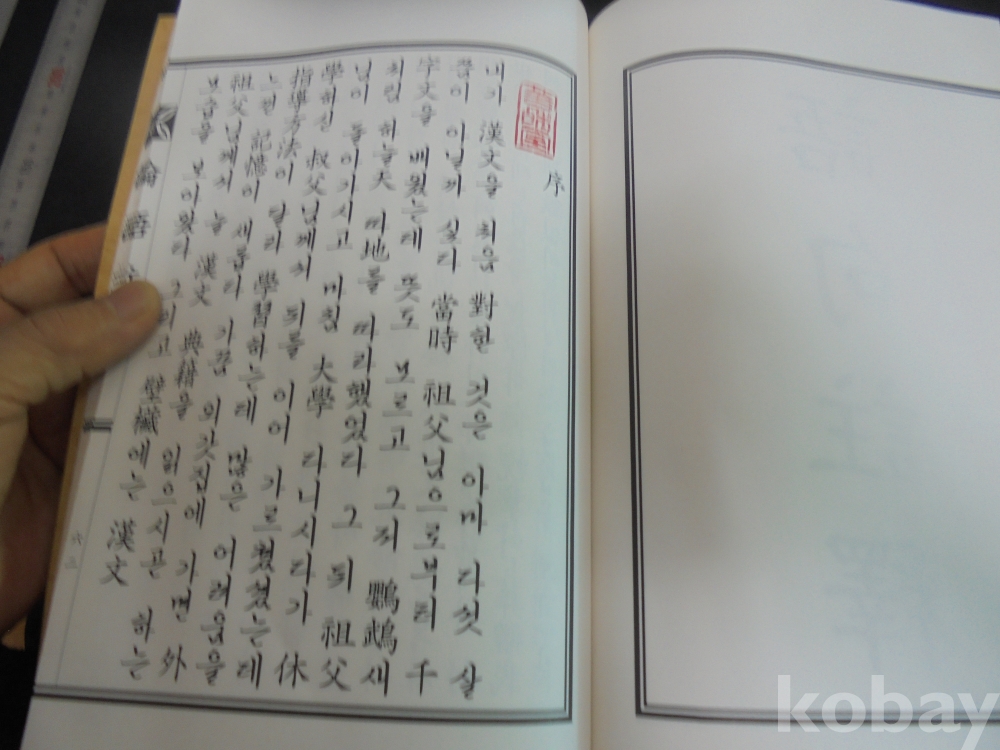 序
내가 漢文을 처음 對한 것은 아마 다섯 살
쯤이 아닐까 싶다 當時 祖父님으로부터 千
字文을 배웠는데 뜻도 모르고 그저 鸚鵡새
처럼 하늘天 따地를 따라했었다 그 뒤 祖父
님이 돌아가시고 마침 大學 다니시다가 休
學하신 叔父님께서 뒤를 이어 가르쳤었는데
指導方法이 달라 學習하는데 많은 어려움을
느낀 記憶이 새롭다 가끔 외갓집에 가면 外
祖父님께서 늘 漢文 典籍을 읽으시곤 하는
모습을 보아왔다 그리고 壁欌에는 漢文
論語
kobay